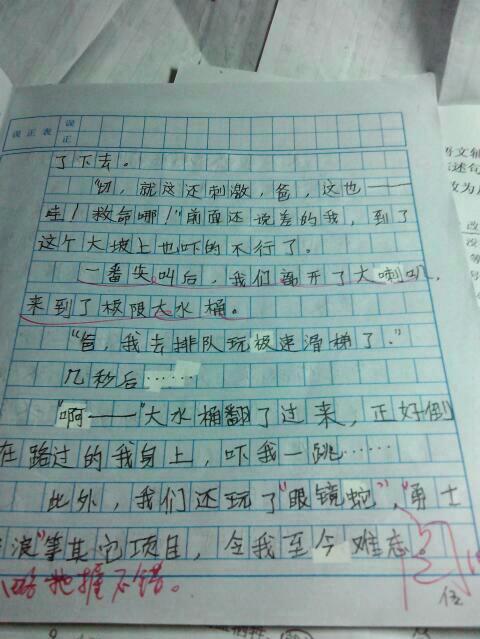 误正表 误
正
了下去。
"切，就这还刺激，爸，这也——
哇！救命哪！"前面还说差的我，到了
这个大坡上也吓的不行了。
一番尖叫后，我们离开了大喇叭，
来到了极限大水桶。
"爸，我去排队玩极速滑梯了。"
几秒后……
"啊——"大水桶翻了过来，正好倒
在路过的我身上，吓我一跳……
此外，我们还玩了"眼镜蛇"，"勇士
浪"等其它项目，令我至今难忘。
把握不错。